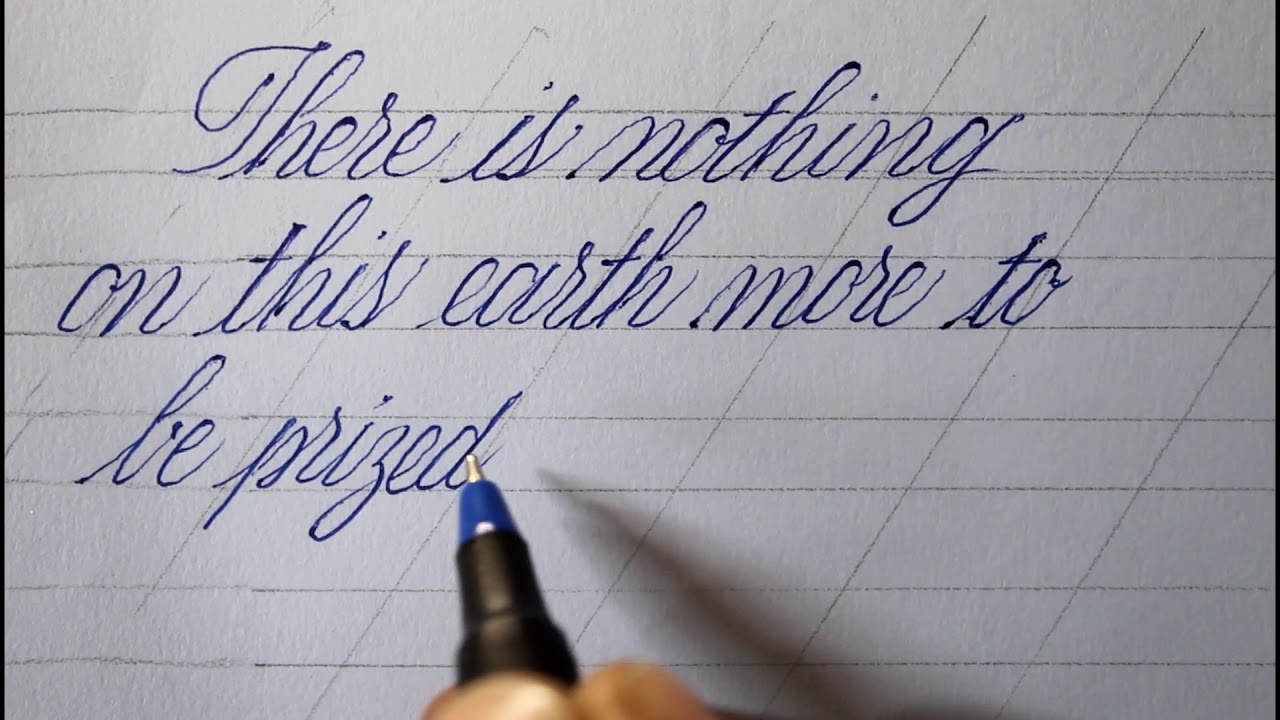 There is nothing
on this earth more to
be prized